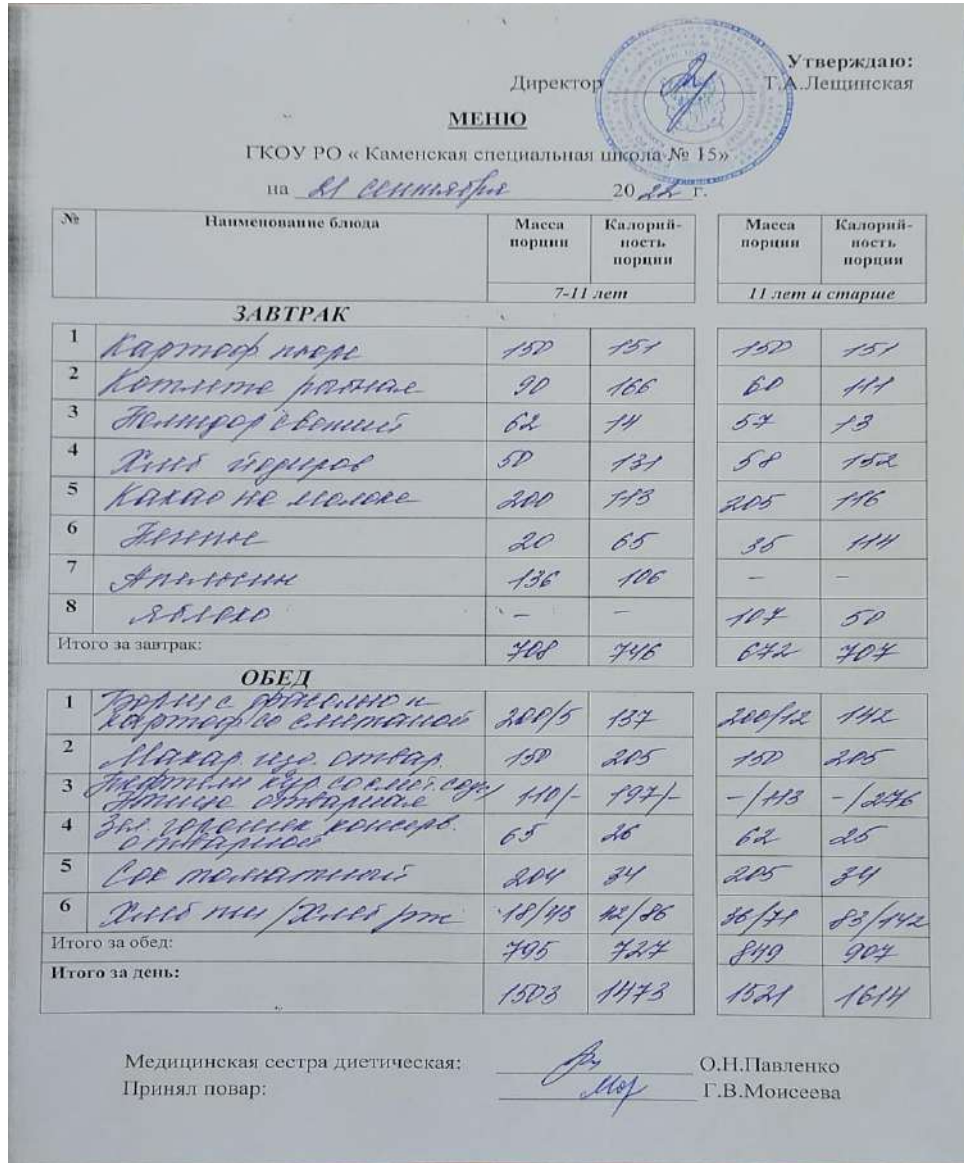 Утверждаю:
Директор Т.А.Лещинская
МЕНЮ
ГКОУ РО « Каменская специальная школа № 15»
на 21 сентября 2022 г.
№ Наименование блюда Масса порции Калорий-ность порции Масса порции Калорий-ность порции
7-11 лет 11 лет и старше
ЗАВТРАК
1 Картоф пюре 150 151 150 151
2 Котлета рыбная 90 166 60 111
3 Помидор свежий 62 14 57 13
4 Хлеб йодиров 50 131 58 152
5 Какао на молоке 200 113 205 116
6 Печенье 20 65 35 114
7 Апельсин 136 106 – –
8 Яблоко – – 107 50
Итого за завтрак: 708 746 672 707
ОБЕД
1 Борщ с фасолью и
картоф со сметаной 200/5 137 200/12 142
2 Макар. изд. отвар. 150 205 150 205
3 Тефтели кур со смет. соус/
Птица отварная 110/- 197/- -/113 -/276
4 Зел. горошек консерв.
отварной 65 26 62 25
5 Сок томатный 204 34 205 34
6 Хлеб пш /Хлеб рж 18/43 42/86 36/71 83/142
Итого за обед: 795 727 849 907
Итого за день: 1503 1473 1521 1614
Медицинская сестра диетическая: О.Н.Павленко
Принял повар: Г.В.Моисеева